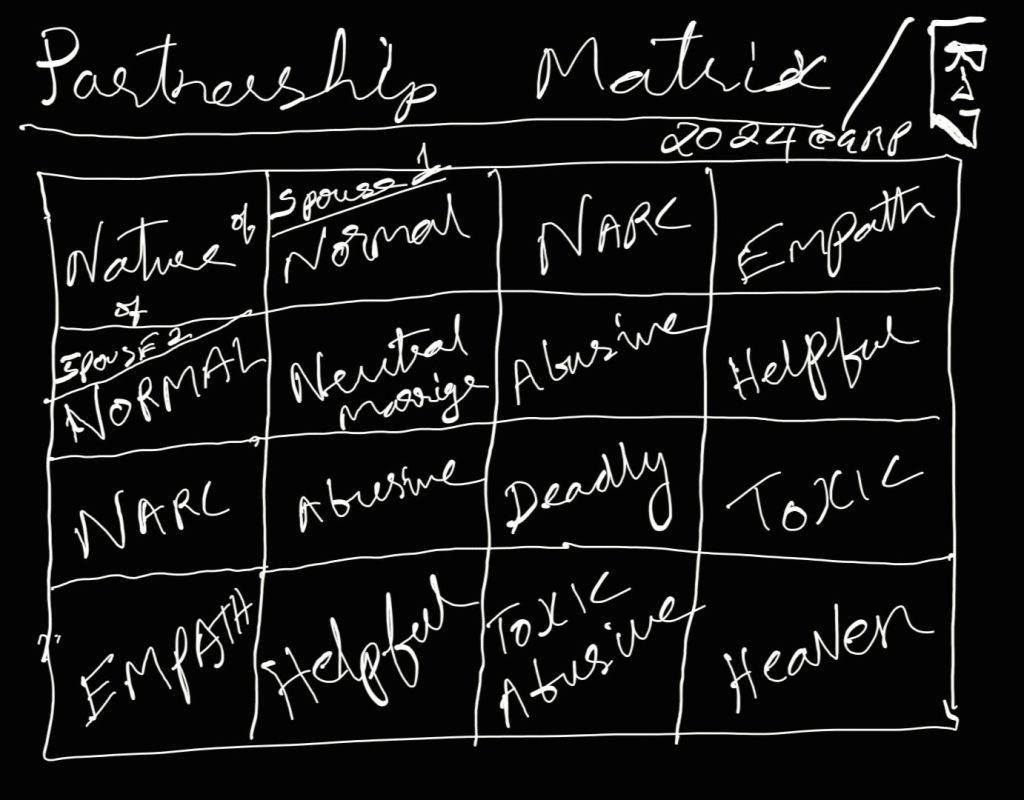 Partnership Matrix /
2024@arp
Nature of
of
Spouse 1
Normal
NARC
Empath
SPOUSE 2
NORMAL
Neutral
marrige
Abusive
Helpful
NARC
Abusive
Deadly
TOXIC
EMPATH
Helpful
TOXIC
Abusive
Heaven